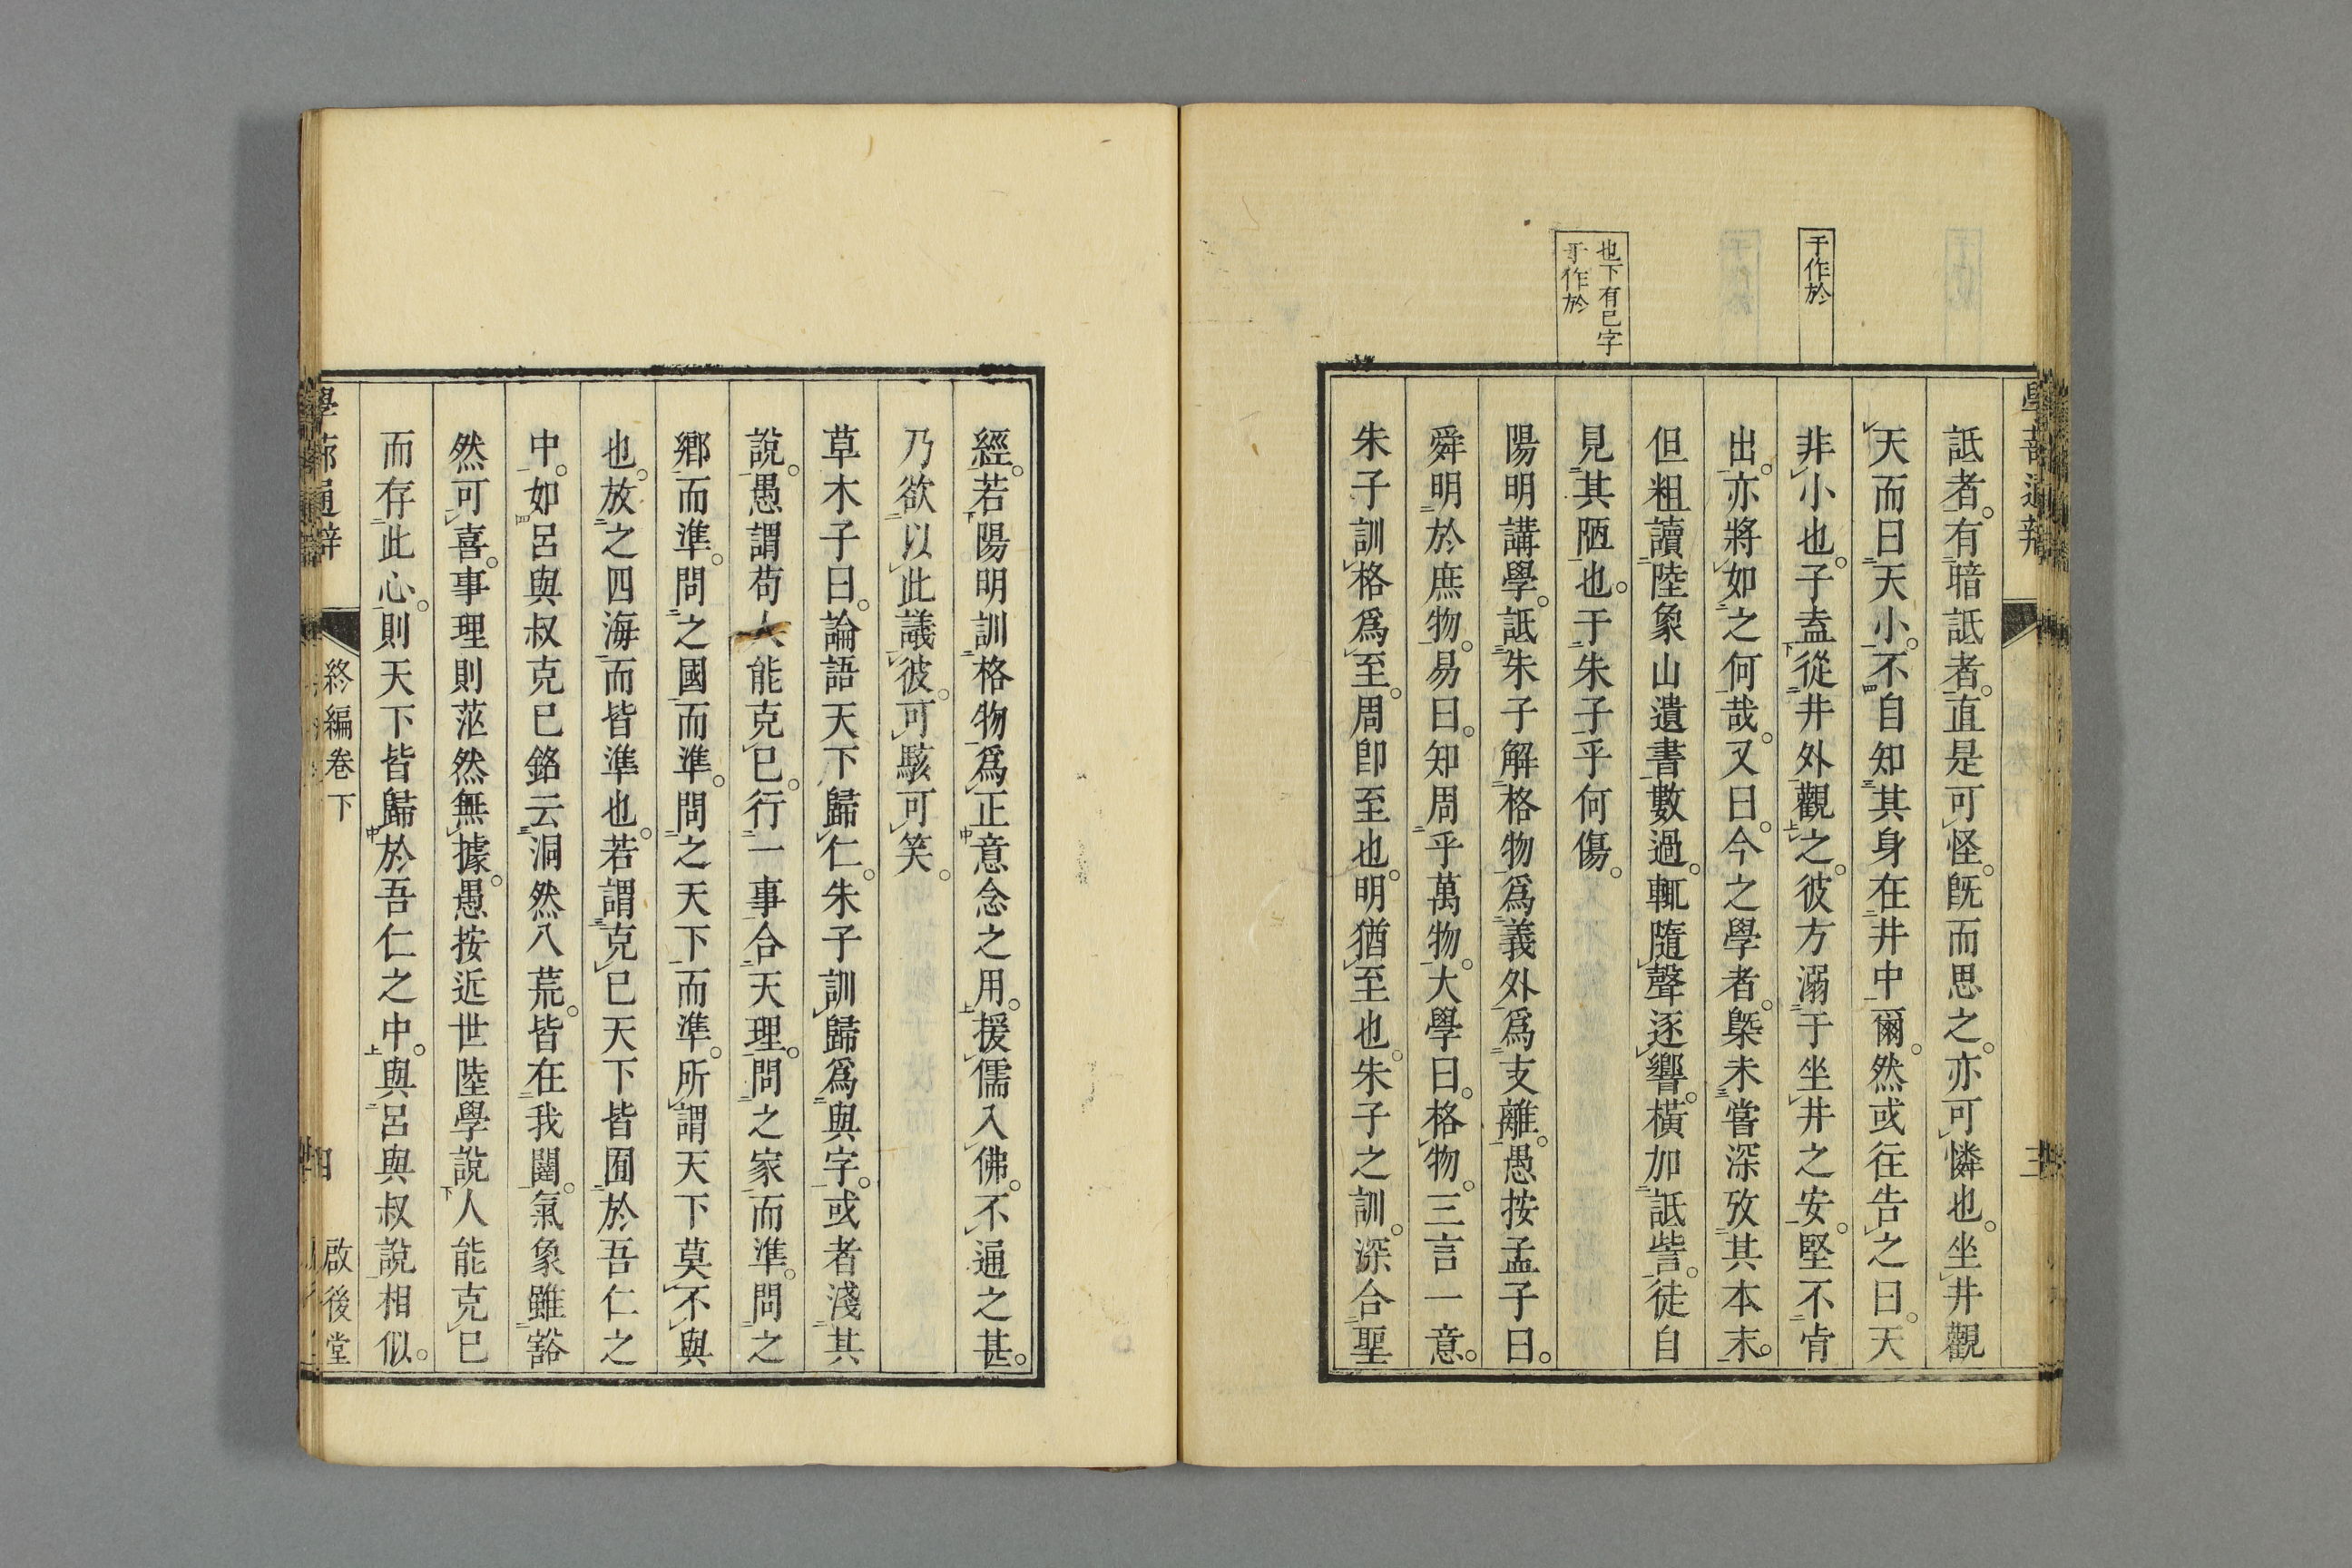 于作於
也下有已字
于作於
詆者有暗詆者直是可怪旣而思之亦可憐也坐井觀
天而曰天小不自知其身在井中爾然或往告之曰天
非小也子盍從井外觀之彼方溺于坐井之安堅不肯
出亦將如之何哉又曰今之學者槩未嘗深攷其本末
但粗讀陸象山遺書數過輒隨聲逐響橫加詆訾徒自
見其陋也于朱子乎何傷
陽明講學詆朱子解格物爲義外爲支離愚按孟子曰
舜明於庶物易曰知周乎萬物大學曰格物三言一意
朱子訓格爲至周卽至也明猶至也朱子之訓深合聖
經若陽明訓格物爲正意念之用援儒入佛不通之甚
乃欲以此議彼可駭可笑
草木子曰論語天下歸仁朱子訓歸爲與字或者淺其
說愚謂苟人能克已行一事合天理問之家而準問之
鄕而準問之國而準問之天下而準所謂天下莫不與
也放之四海而皆準也若謂克已天下皆囿於吾仁之
中如呂與叔克已銘云洞然八荒皆在我闥氣象雖豁
然可喜事理則茫然無據愚按近世陸學說人能克已
而存此心則天下皆歸於吾仁之中與呂與叔說相似
學蔀通辨
終編卷下
四
啟後堂